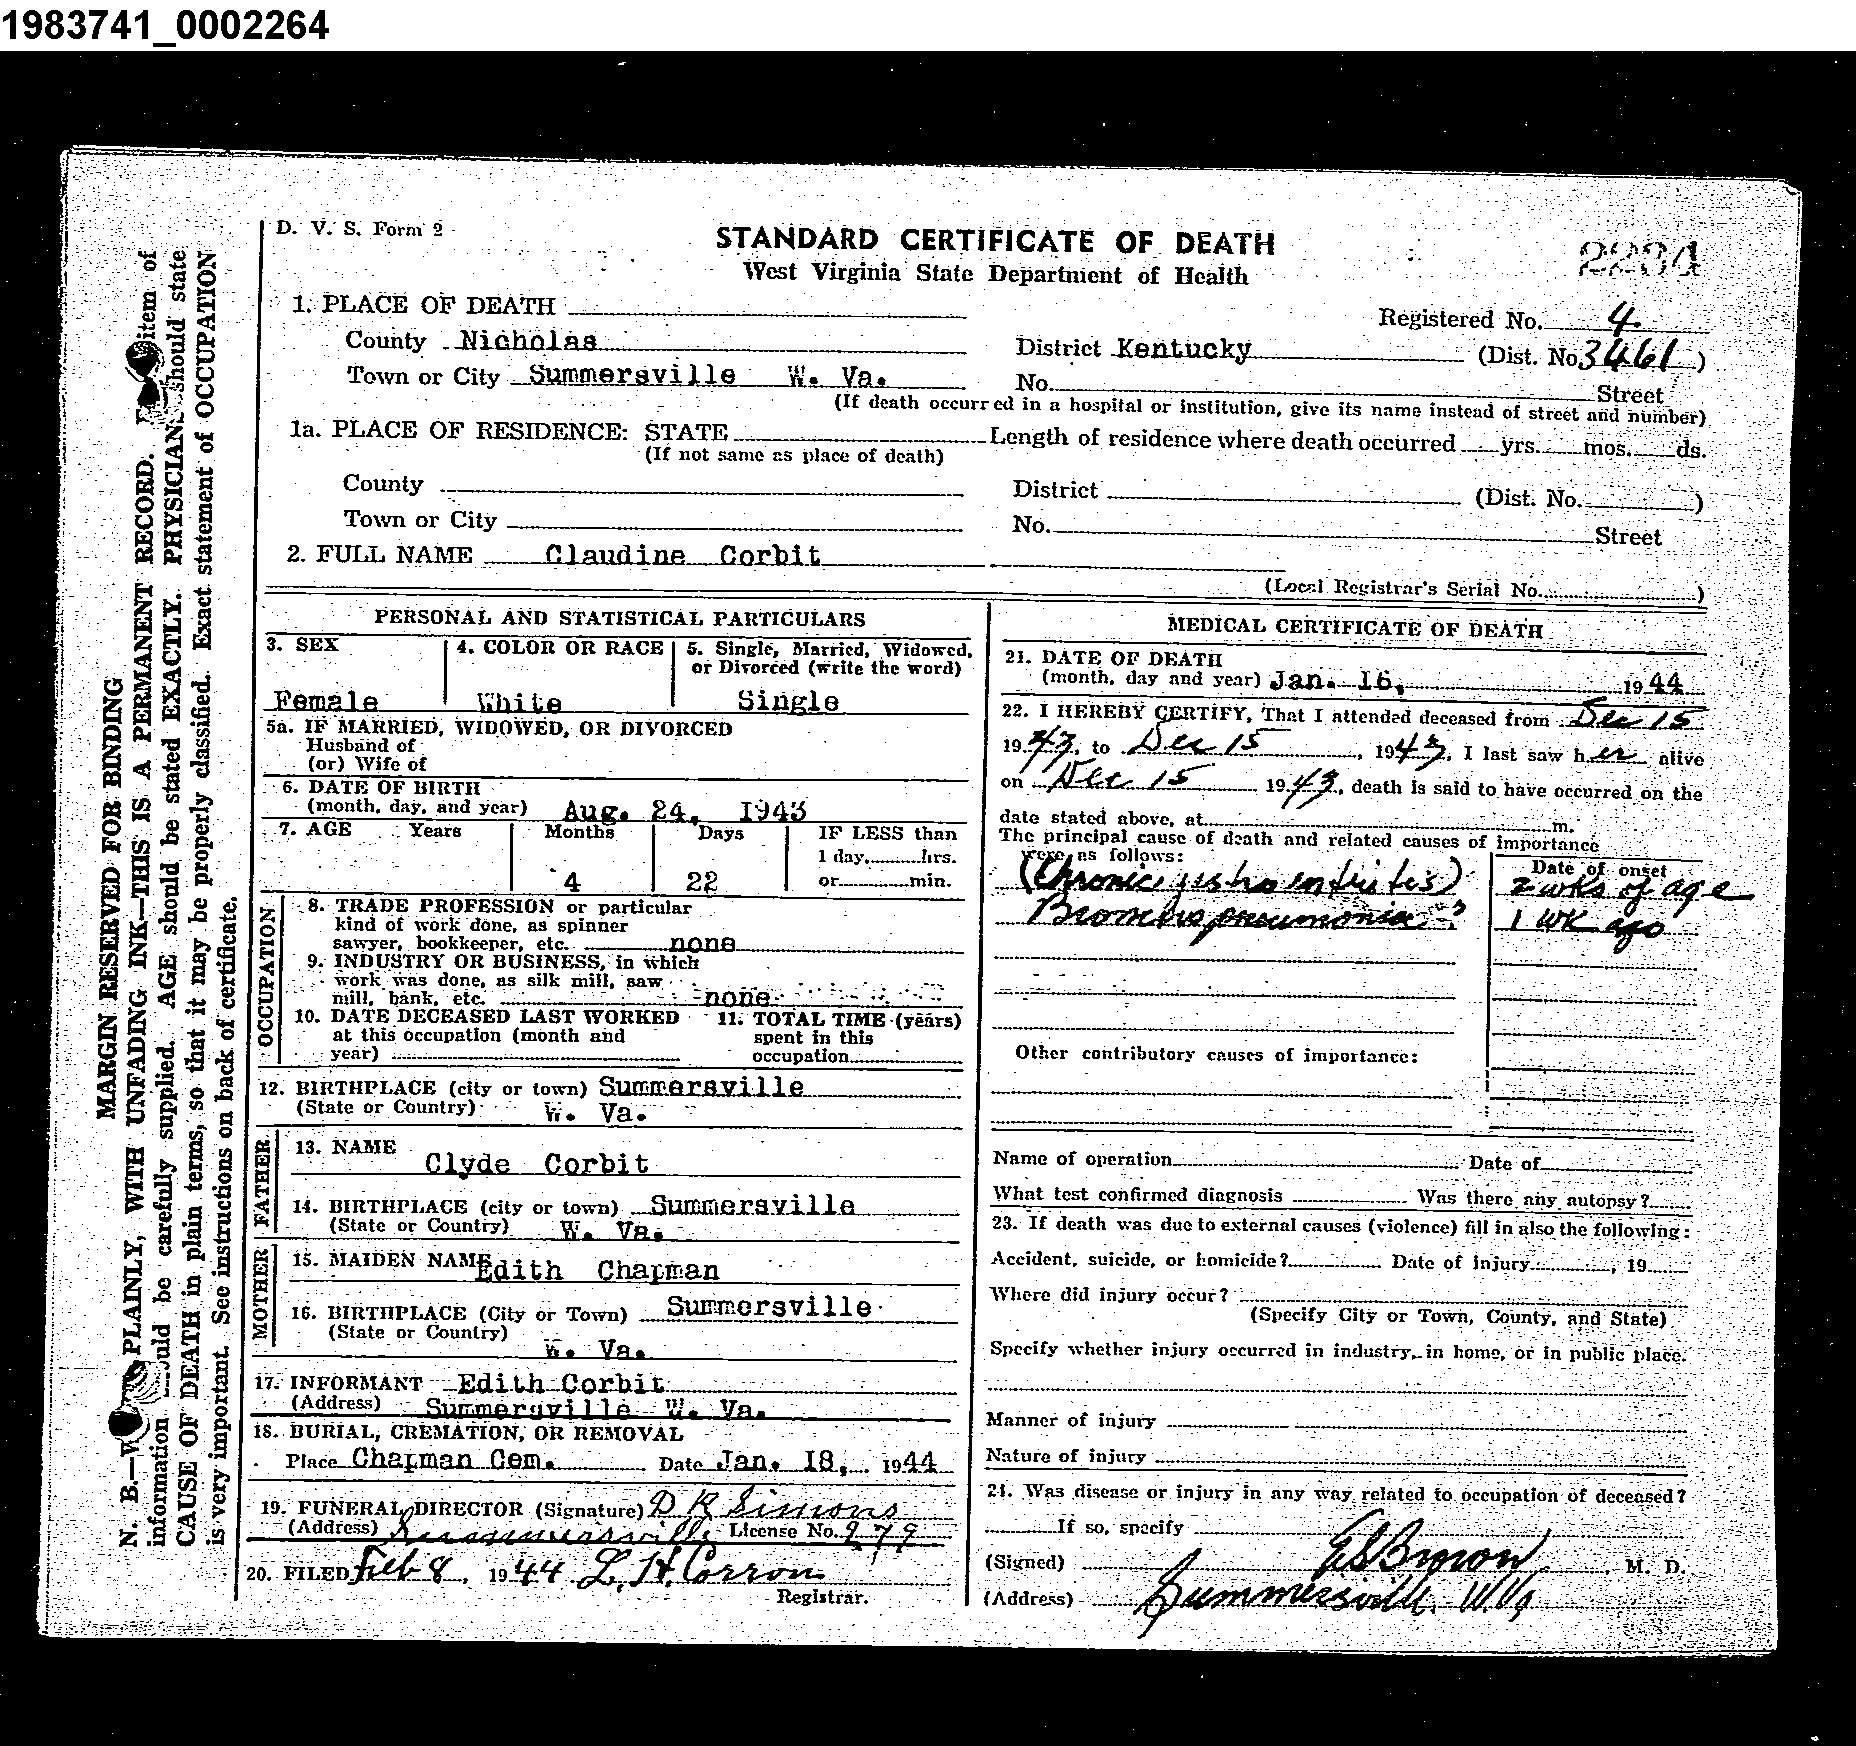 1983741_0002264
D. V. S. Form 2
STANDARD CERTIFICATE OF DEATH
West Virginia State Department of Health
1. PLACE OF DEATH
Registered No. 4
County Nicholas
District Kentucky (Dist. No 3461)
Town or City Summersville W. Va.
No. Street
(If death occurred in a hospital or institution, give its name instead of street and number)
1a. PLACE OF RESIDENCE: STATE Length of residence where death occurred yrs. mos. ds.
(If not same as place of death)
County District (Dist. No. )
Town or City No. Street
2. FULL NAME Claudine Corbit
(Local Registrar's Serial No. )
PERSONAL AND STATISTICAL PARTICULARS
3. SEX 4. COLOR OR RACE 5. Single, Married, Widowed, or Divorced (write the word)
Female White Single
5a. IF MARRIED, WIDOWED, OR DIVORCED
Husband of
(or) Wife of
6. DATE OF BIRTH
(month, day, and year) Aug. 24, 1943
7. AGE Years Months Days IF LESS than
1 day, hrs.
4 22 or min.
OCCUPATION
8. TRADE PROFESSION or particular
kind of work done, as spinner
sawyer, bookkeeper, etc. none
9. INDUSTRY OR BUSINESS, in which
work was done, as silk mill, saw
mill, bank, etc. none
10. DATE DECEASED LAST WORKED 11. TOTAL TIME (years)
at this occupation (month and spent in this
year) occupation
12. BIRTHPLACE (city or town) Summersville
(State or Country) W. Va.
FATHER
13. NAME Clyde Corbit
14. BIRTHPLACE (city or town) Summersville
(State or Country) W. Va.
MOTHER
15. MAIDEN NAME Edith Chapman
16. BIRTHPLACE (City or Town) Summersville
(State or Country) W. Va.
17. INFORMANT Edith Corbit
(Address) Summersville W. Va.
18. BURIAL, CREMATION, OR REMOVAL
Place Chapman Cem. Date Jan. 18, 1944
19. FUNERAL DIRECTOR (Signature) D R Simons
(Address) Summersville License No. 279
20. FILED Feb 8, 1944 L. H. Corron
Registrar.
MEDICAL CERTIFICATE OF DEATH
21. DATE OF DEATH
(month, day and year) Jan. 16, 1944
22. I HEREBY CERTIFY, That I attended deceased from Dec 15
1943, to Dec 15, 1943, I last saw her alive
on Dec 15 1943, death is said to have occurred on the
date stated above, at m.
The principal cause of death and related causes of importance
were as follows: Date of onset
(Chronic 2 wks of age
1 wk ago
Other contributory causes of importance:
Name of operation Date of
What test confirmed diagnosis Was there any autopsy?
23. If death was due to external causes (violence) fill in also the following:
Accident, suicide, or homicide? Date of injury , 19
Where did injury occur?
(Specify City or Town, County, and State)
Specify whether injury occurred in industry, in home, or in public place.
Manner of injury
Nature of injury
24. Was disease or injury in any way related to occupation of deceased?
If so, specify
(Signed) E S Brown, M. D.
(Address) Summersville, W. Va
MARGIN RESERVED FOR BINDING
N. B.—W PLAINLY, WITH UNFADING INK—THIS IS A PERMANENT RECORD. item of
information should be carefully supplied. AGE should be stated EXACTLY. PHYSICIAN should state
CAUSE OF DEATH in plain terms, so that it may be properly classified. Exact statement of OCCUPATION
is very important. See instructions on back of certificate.